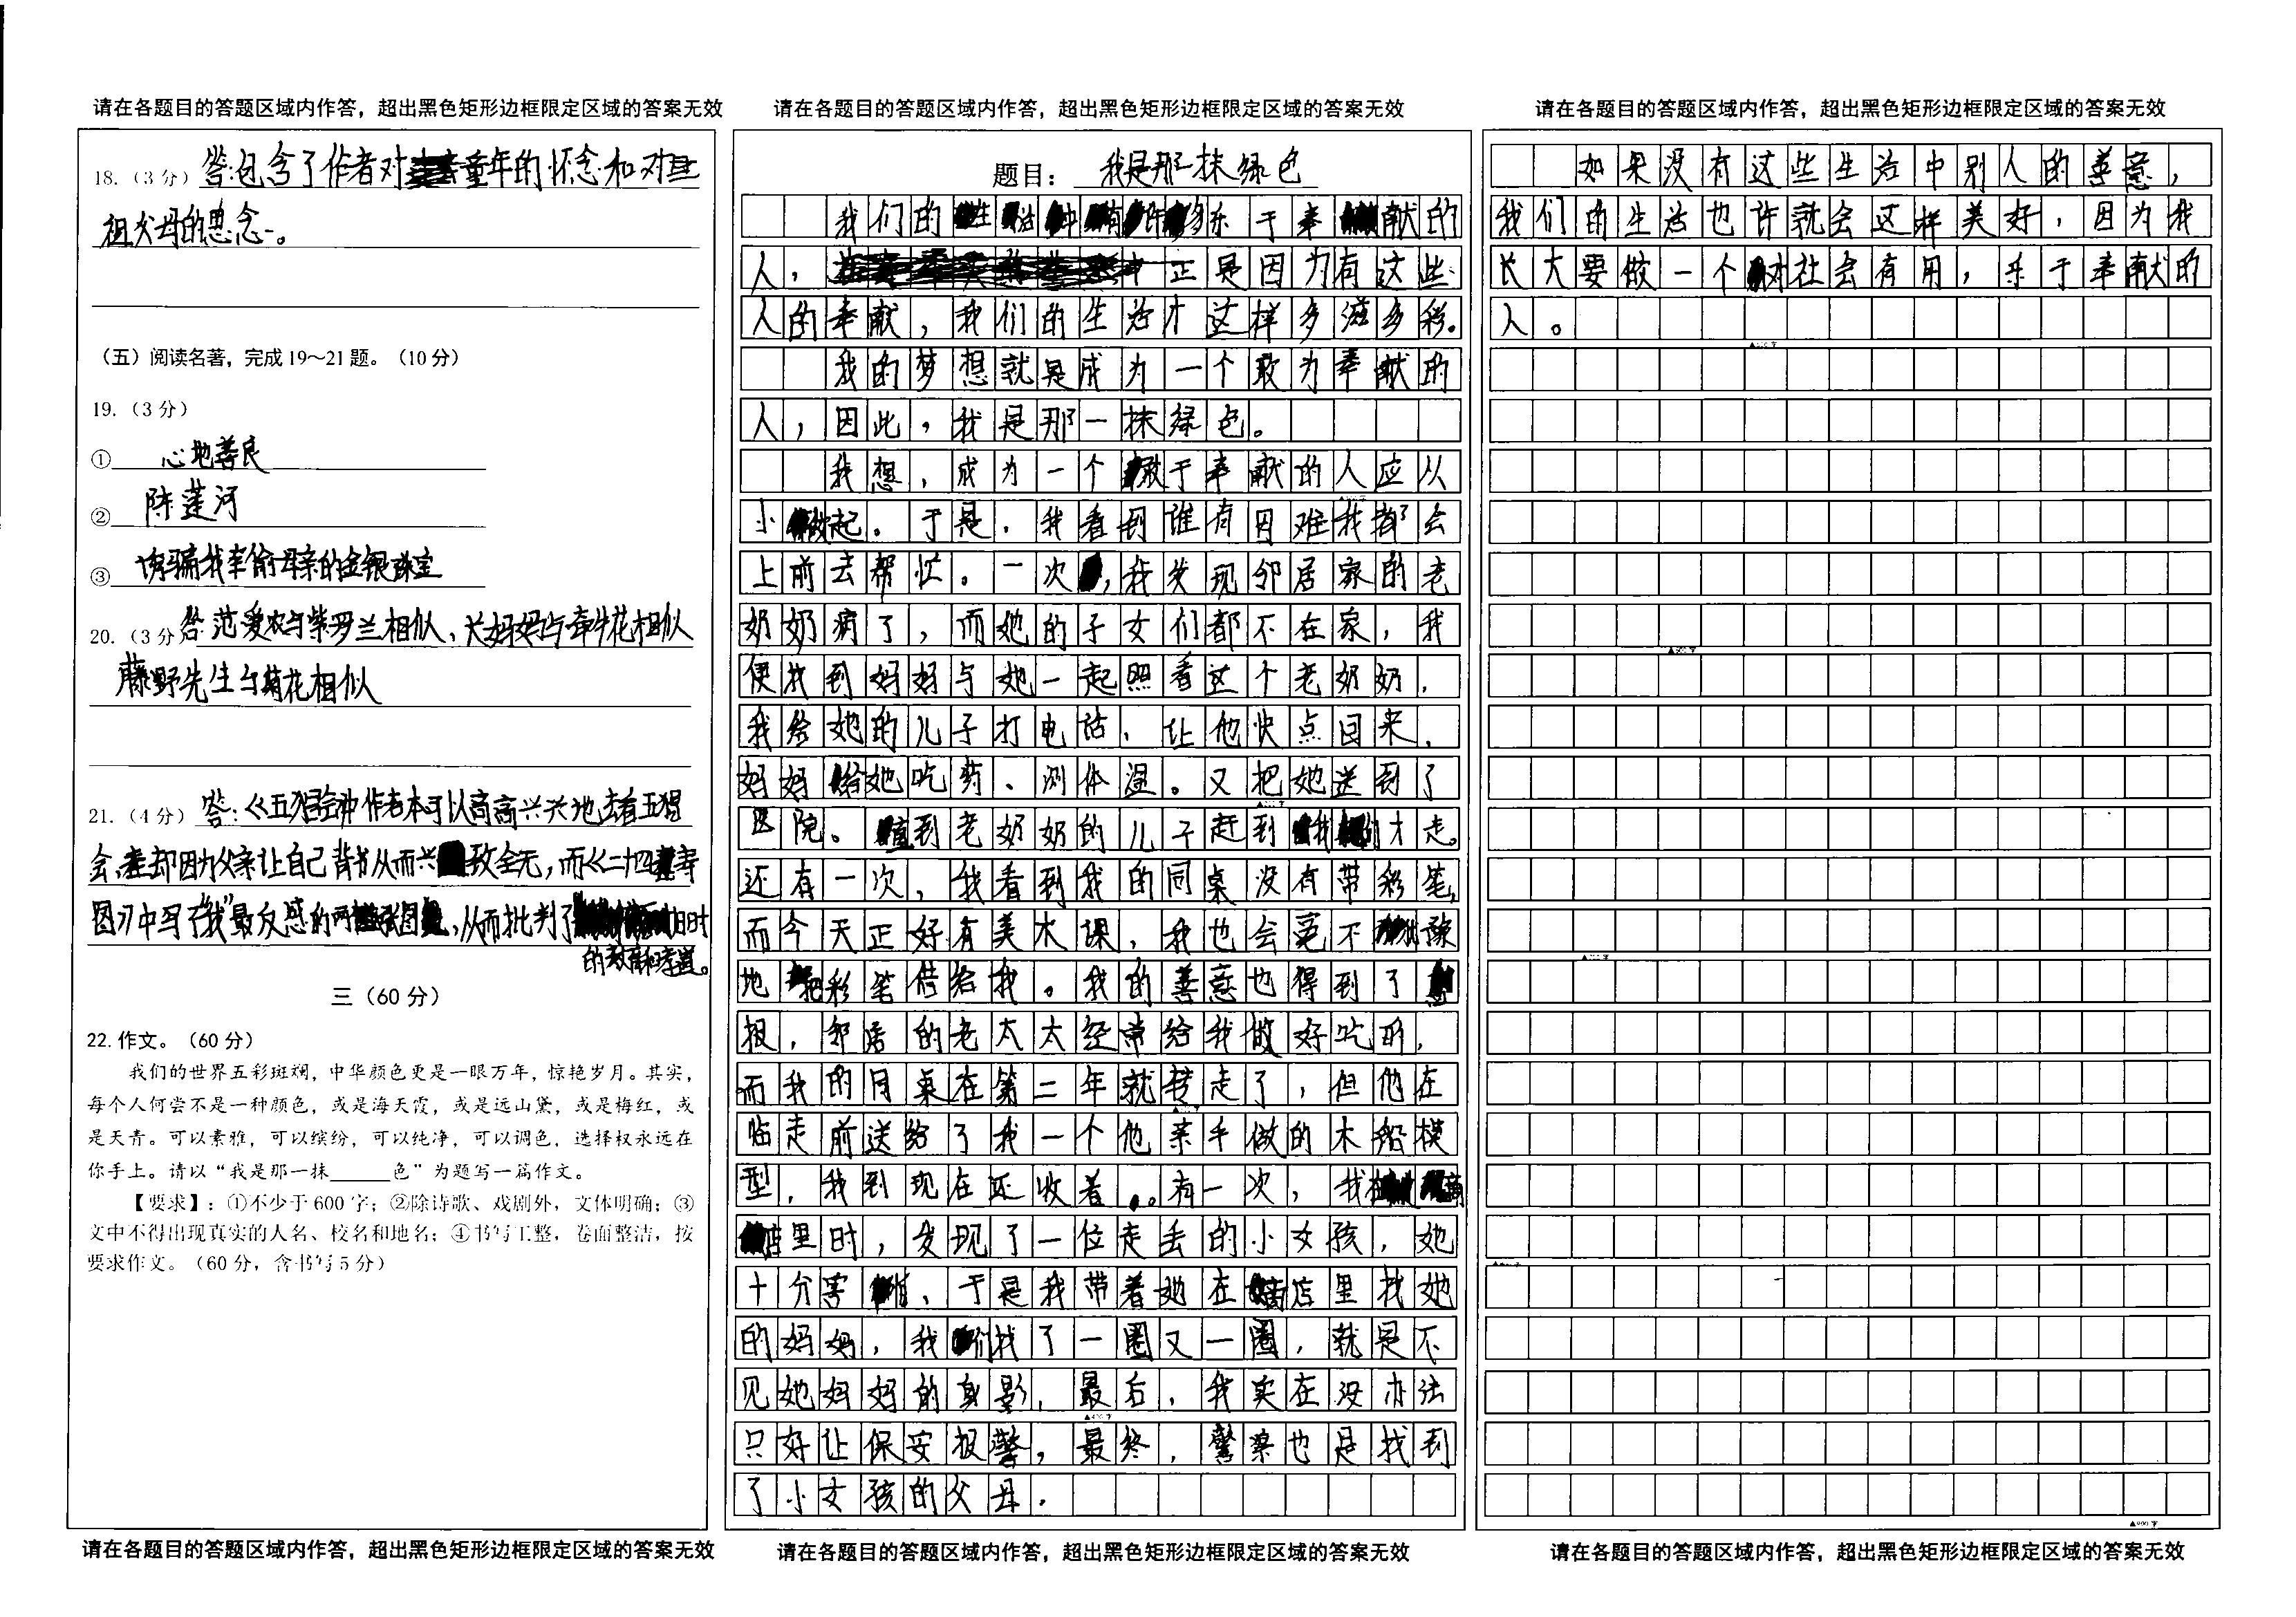 请在各题目的答题区域内作答，超出黑色矩形边框限定区域的答案无效
18.（3 分）答:包含了作者对童年的怀念和对
祖父母的思念。
（五）阅读名著，完成 19～21 题。（10 分）
19.（3 分）
① 心地善良
② 陈莲河
③ 诱骗我去偷母亲的金银珠宝
20.（3 分）答:范爱农与紫罗兰相似、长妈妈与牵牛花相似
藤野先生与菊花相似
21.（4 分）答:《五猖会》中作者本可以高高兴兴地去看五猖
会,却因为父亲让自己背书从而兴致全无,而《二十四孝
图》中写了“我”最反感的两张图,从而批判了旧时
的教育和孝道。
三（60 分）
22.作文。（60 分）
我们的世界五彩斑斓，中华颜色更是一眼万年，惊艳岁月。其实，
每个人何尝不是一种颜色，或是海天霞，或是远山黛，或是梅红，或
是天青。可以素雅，可以缤纷，可以纯净，可以调色，选择权永远在
你手上。请以“我是那一抹______色”为题写一篇作文。
【要求】：①不少于 600 字；②除诗歌、戏剧外，文体明确；③
文中不得出现真实的人名、校名和地名；④书写工整，卷面整洁，按
要求作文。（60 分，含书写 5 分）
请在各题目的答题区域内作答，超出黑色矩形边框限定区域的答案无效
请在各题目的答题区域内作答，超出黑色矩形边框限定区域的答案无效
题目： 我是那一抹绿色
我们的生活中有许多乐于奉献的
人，正是因为有这些
人的奉献，我们的生活才这样多滋多彩。
我的梦想就是成为一个敢为奉献的
人，因此，我是那一抹绿色。
我想，成为一个敢于奉献的人应从
小做起。于是，我看到谁有困难我都会
上前去帮忙。一次，我发现邻居家的老
奶奶病了，而她的子女们都不在家，我
便找到妈妈与她一起照看这个老奶奶，
我给她的儿子打电话，让他快点回来，
妈妈给她吃药、测体温。又把她送到了
医院。直到老奶奶的儿子赶到我们才走。
还有一次，我看到我的同桌没有带彩笔，
而今天正好有美术课，我也会毫不犹豫
地把彩笔借给我。我的善意也得到了
报，邻居的老太太经常给我做好吃的，
而我的同桌在第二年就转走了，但他在
临走前送给了我一个他亲手做的木船模
型，我到现在还收着。有一次，我在商
店里时，发现了一位走丢的小女孩，她
十分害怕、于是我带着她在商店里找她
的妈妈，我们找了一圈又一圈，就是不
见她妈妈的身影，最后，我实在没办法
只好让保安报警，最终，警察也是找到
了小女孩的父母。
请在各题目的答题区域内作答，超出黑色矩形边框限定区域的答案无效
请在各题目的答题区域内作答，超出黑色矩形边框限定区域的答案无效
如果没有这些生活中别人的善意，
我们的生活也许就会这样美好，因为我
长大要做一个对社会有用，乐于奉献的
人。
请在各题目的答题区域内作答，超出黑色矩形边框限定区域的答案无效